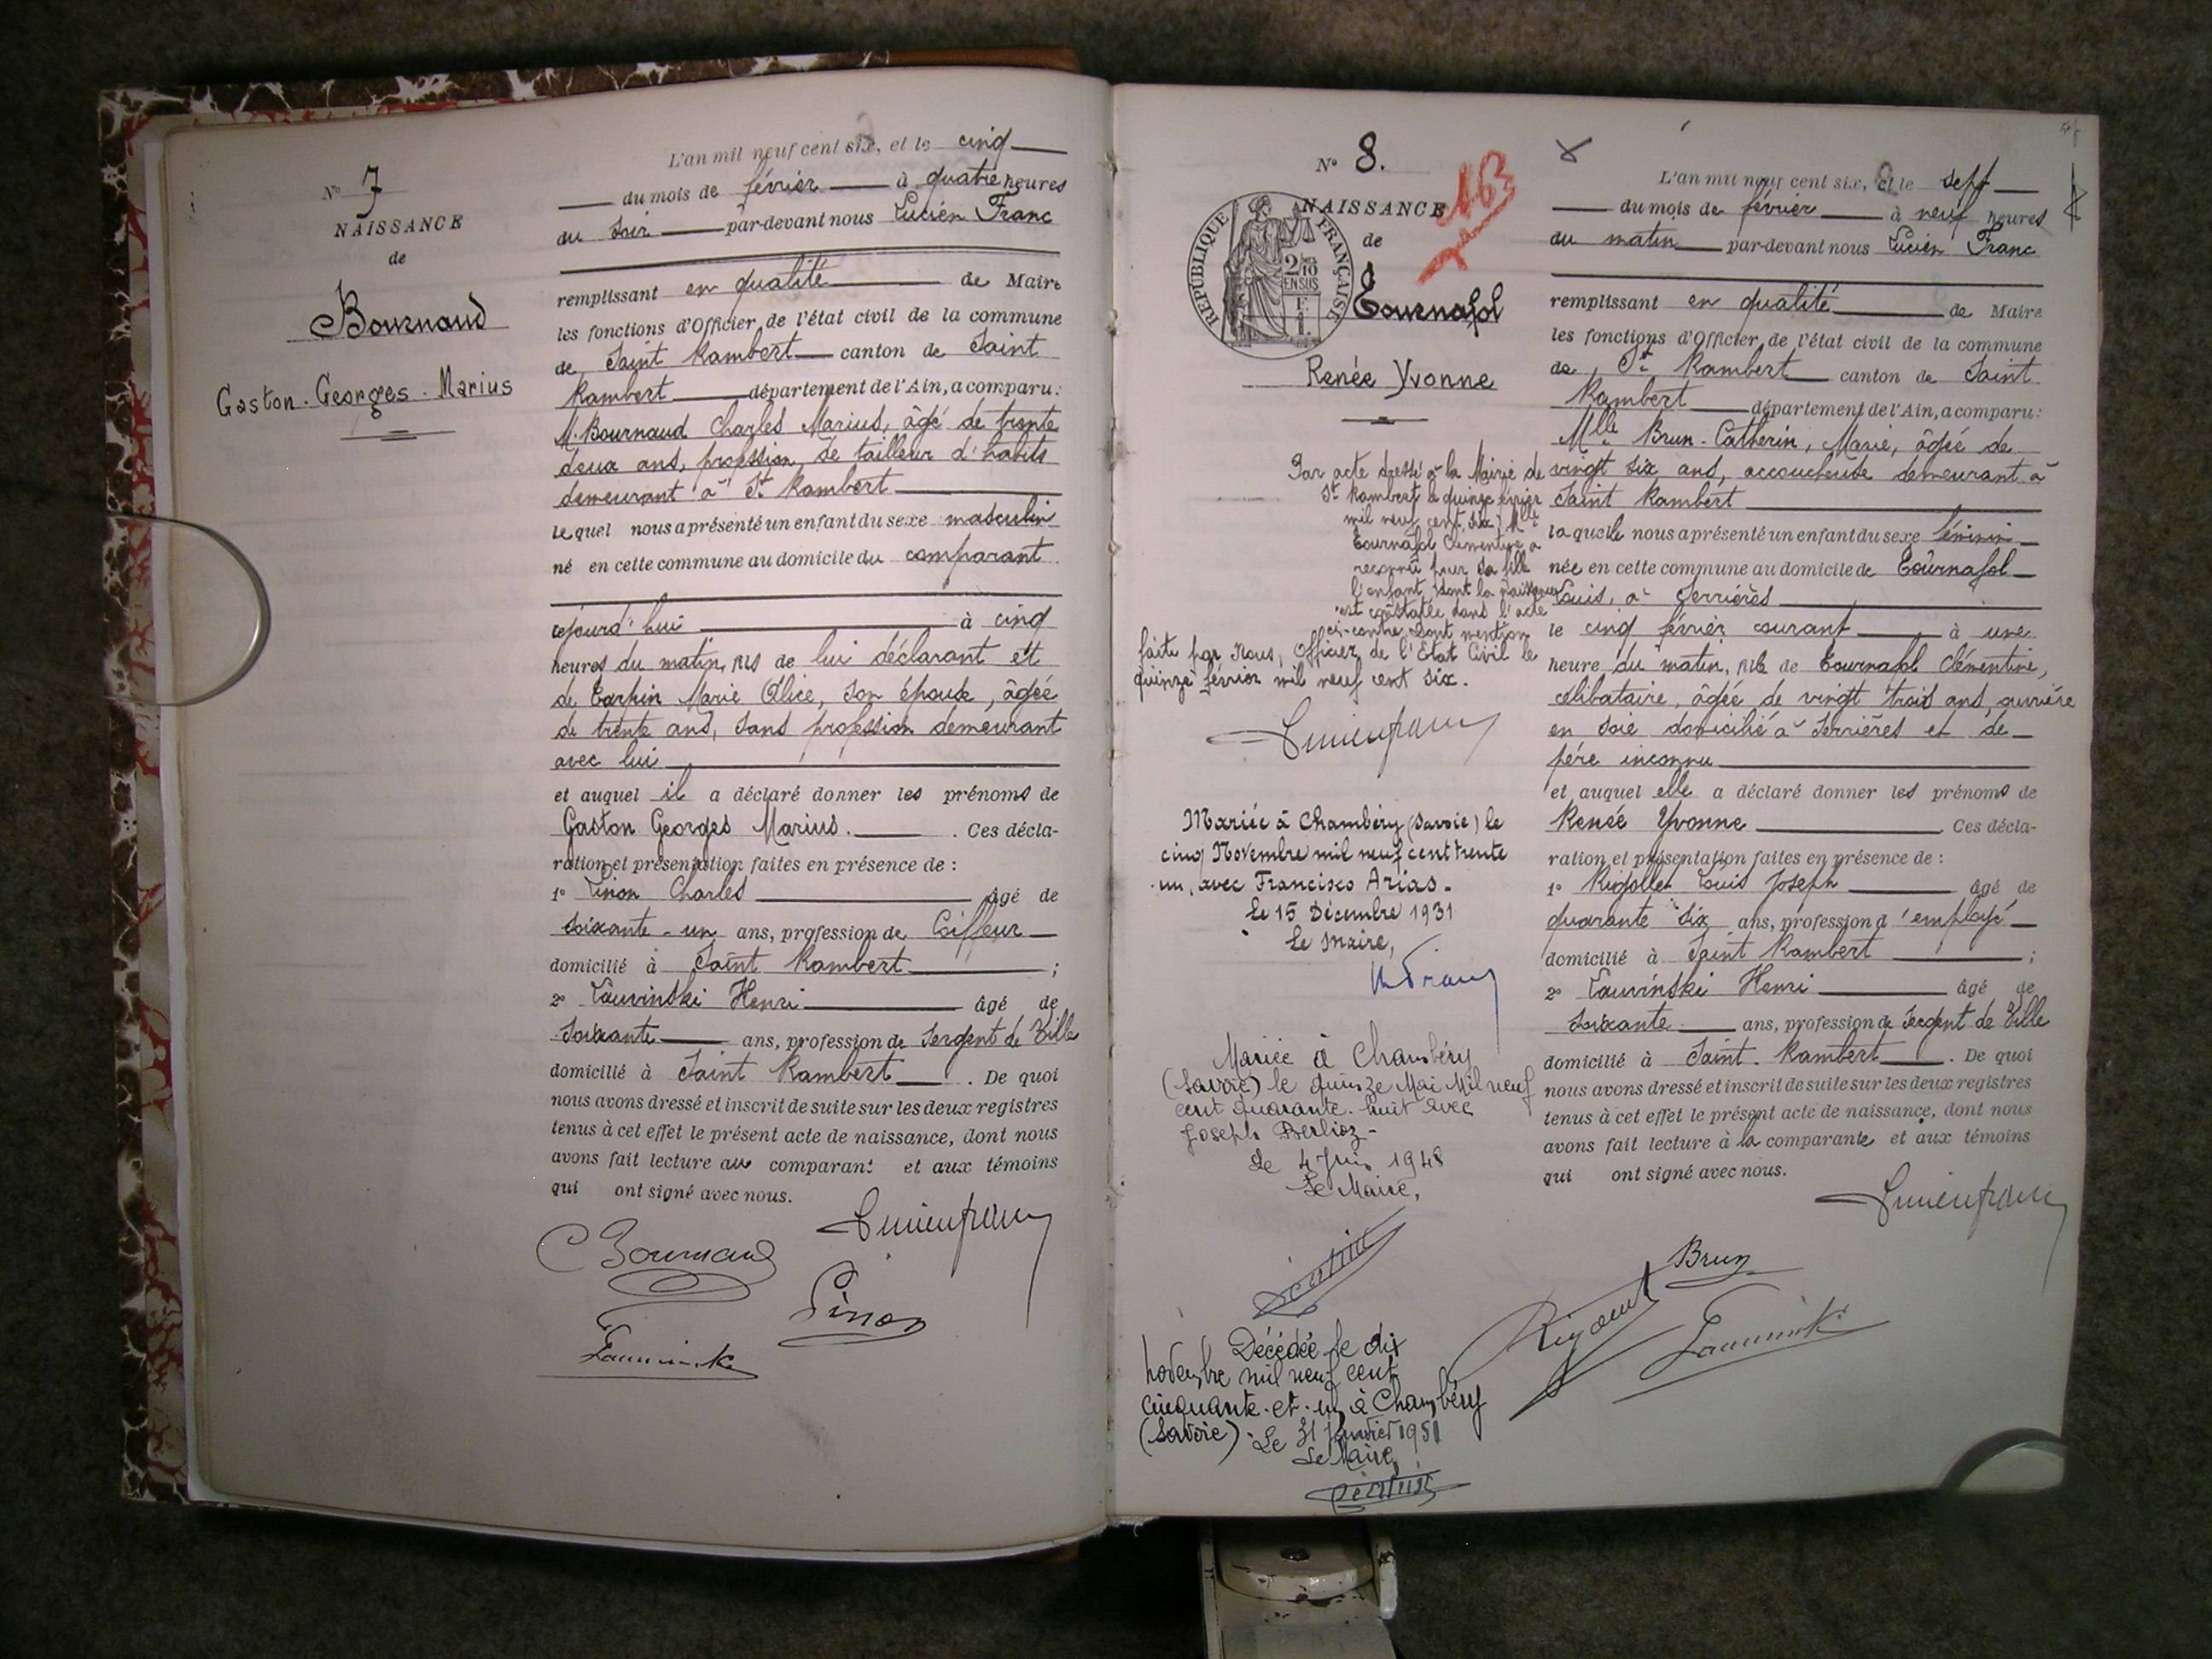 N° 7
NAISSANCE
de
Bournaud
Gaston. Georges. Marius
L'an mil neuf cent six, et le cinq
du mois de février à quatre heures
du soir par-devant nous Lucien Franc
remplissant en qualité de Maire
les fonctions d'Officier de l'état civil de la commune
de Saint Rambert canton de Saint
Rambert département de l'Ain, a comparu :
M. Bournaud Charles Marius, âgé de trente
deux ans, profession de tailleur d'habits
demeurant à St Rambert
lequel nous a présenté un enfant du sexe masculin
né en cette commune au domicile du comparant
cejourd'hui à cinq
heures du matin, fils de lui déclarant et
de Carpin Marie Alice, son épouse, âgée
de trente ans, sans profession demeurant
avec lui
et auquel il a déclaré donner les prénoms de
Gaston Georges Marius. . Ces décla-
ration et présentation faites en présence de :
1° Pinon Charles âgé de
soixante-un ans, profession de Coiffeur
domicilié à Saint Rambert ;
2° Lauvinski Henri âgé de
soixante ans, profession de Sergent de Ville
domicilié à Saint Rambert . De quoi
nous avons dressé et inscrit de suite sur les deux registres
tenus à cet effet le présent acte de naissance, dont nous
avons fait lecture au comparant et aux témoins
qui ont signé avec nous.
C Bournaud
Lucien franc
Pinon
N° 8.
163
NAISSANCE
de
REPUBLIQUE FRANÇAISE
2/10
EN SUS
Tournafol
Renée Yvonne
Par acte dressé à la Mairie de
St Rambert le quinze février
mil neuf cent six, Mlle
Tournafol Clémentine a
reconnu pour sa fille
l'enfant dont la naissance
est constatée dans l'acte
ci-contre dont mention
faite par Nous, Officier de l'Etat Civil le
quinze février mil neuf cent six.
Lucien franc
Mariée à Chambéry (Savoie) le
cinq Novembre mil neuf cent trente
un, avec Francisco Arias.
Le 15 Décembre 1931
Le Maire,
Mariée à Chambéry
(Savoie) le quinze Mai Mil neuf
cent quarante. huit avec
Joseph Berlioz-
Le 4 Juin 1948
Le Maire,
Décédée le dix
novembre mil neuf cent
cinquante-et-un à Chambéry
(Savoie). Le 31 Janvier 1951
Le Maire,
L'an mil neuf cent six, et le sept
du mois de février à neuf heures
du matin par-devant nous Lucien Franc
remplissant en qualité de Maire
les fonctions d'Officier de l'état civil de la commune
de St Rambert canton de Saint
Rambert département de l'Ain, a comparu :
Mlle Brun-Catherin, Marie, âgée de
vingt six ans, accoucheuse demeurant à
Saint Rambert
laquelle nous a présenté un enfant du sexe féminin
née en cette commune au domicile de Tournafol
Louis, à Serrières
le cinq février courant à une
heure du matin, fille de Tournafol Clémentine,
célibataire, âgée de vingt trois ans, ouvrière
en soie domicilié à Serrières et de
père inconnu
et auquel elle a déclaré donner les prénoms de
Renée Yvonne . Ces décla-
ration et présentation faites en présence de :
1° Rigollet Louis Joseph âgé de
quarante six ans, profession d'employé
domicilié à Saint Rambert ;
2° Lauvinski Henri âgé de
soixante ans, profession de Sergent de Ville
domicilié à Saint. Rambert . De quoi
nous avons dressé et inscrit de suite sur les deux registres
tenus à cet effet le présent acte de naissance, dont nous
avons fait lecture à la comparante et aux témoins
qui ont signé avec nous.
Lucien franc
Brun